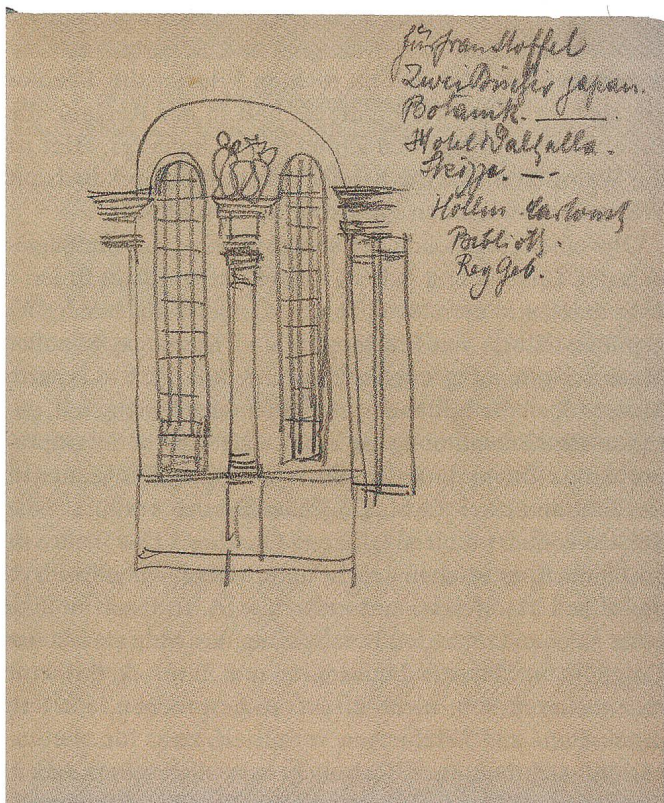 Für Frau Stoffel
Zwei Bücher japan.
Botanik.
Hotel Walhalla.
Skizze. —
Biblioth.
Reg Geb.